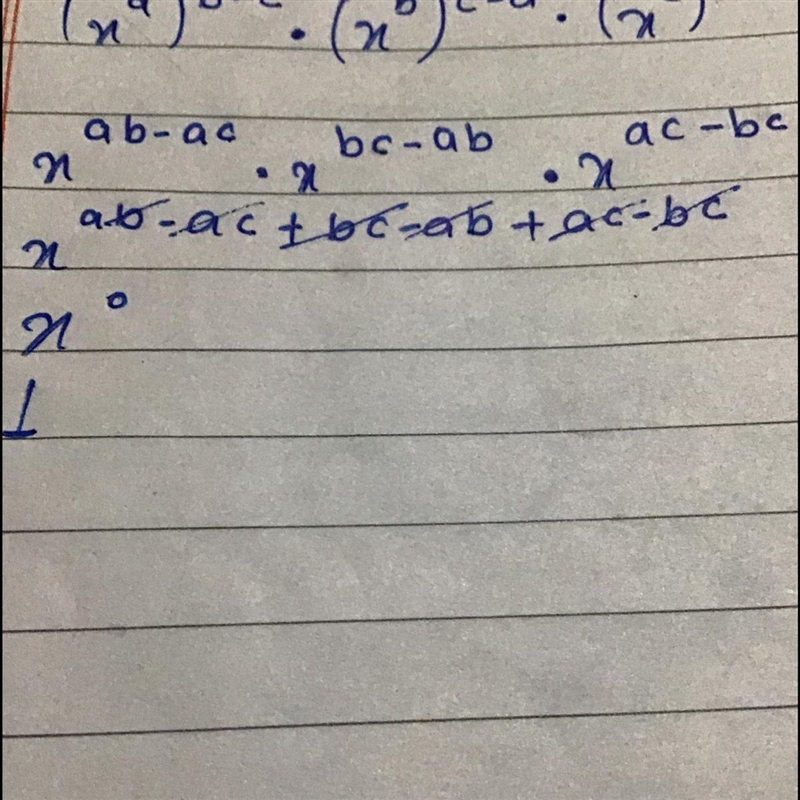 (x^a)^b-c · (x^b)^c-a · (x )
x^ab-ac · x^bc-ab · x^ac-bc
x^ab-ac+bc-ab+ac-bc
x^0
1